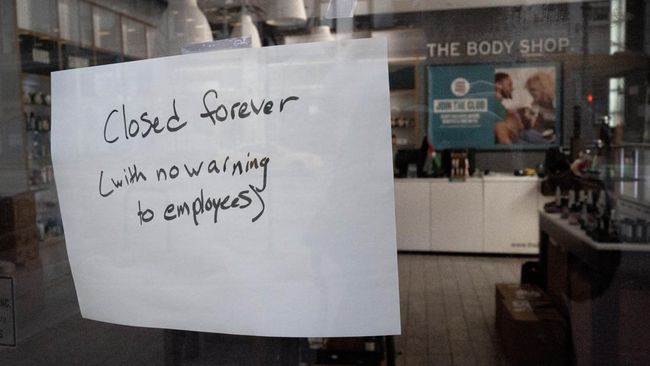 THE BODY SHOP
JOIN THE CLUB
Closed forever
(with no warning
to employees)